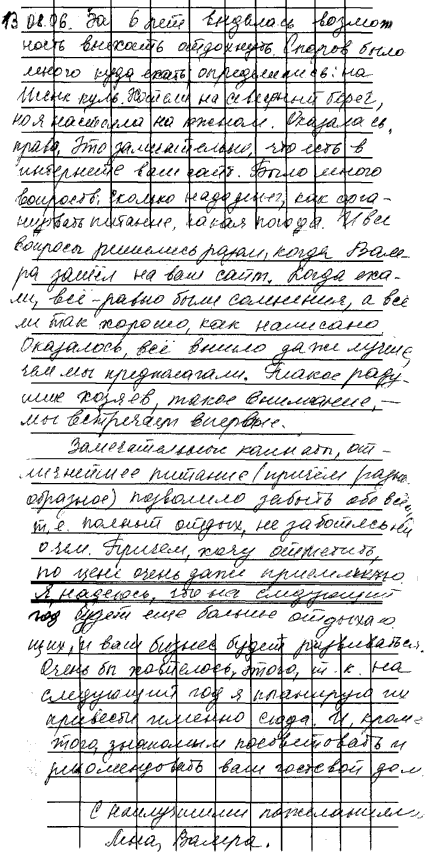 13.08.06. За 6 лет выдалась возмож
ность выехать отдохнуть. Споров было
много куда ехать, определились: на
Иссык куль. Хотели на северный берег,
но я настояла на южном. Оказалась
права. Это замечательно, что есть в
интернете ваш сайт. Было много
вопросов: сколько надо денег, как орга-
низовать питание, какая погода. И все
вопросы решились разом, когда Вале-
ра зашёл на ваш сайт. Когда еха-
ли, всё-равно были сомнения, а всё
ли так хорошо, как написано.
Оказалось, всё вышло даже лучше,
чем мы предполагали. Такое раду-
шие хозяев, такое внимание, –
мы встречаем впервые.
Замечательные комнаты, от-
личнейшее питание (причём разно
образное) позволило забыть обо всём,
т.е. полный отдых, не заботясь ни
о чем. Причем, хочу отметить,
по цене очень даже приемлемо.
Я, надеюсь, что на следующий
год будет еще больше отдыхаю
щих, и ваш бизнес будет развиваться.
Очень бы хотелось, этого, т.к. на
следующий год я планирую
привести именно сюда. И, кроме
того, знакомым посоветовать и
рекомендовать ваш гостевой дом.
С наилучшими пожеланиями
Валера.